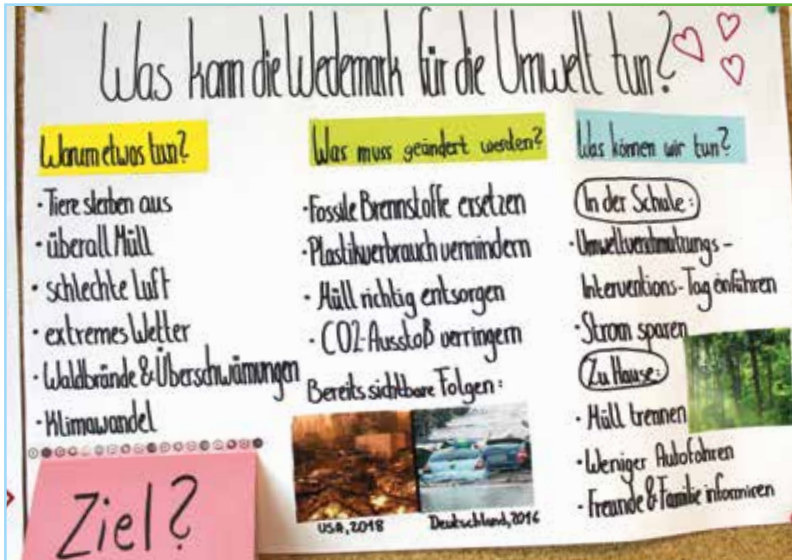 Was kann die Wedemark für die Umwelt tun?
Warum etwas tun?
· Tiere sterben aus
· überall Müll
· schlechte Luft
· extremes Wetter
· Waldbrände & Überschwämungen
· Klimawandel
Ziel?
Was muss geändert werden?
· Fossile Brennstoffe ersetzen
· Plastikverbrauch vermindern
· Müll richtig entsorgen
· CO2-Ausstoß verringern
Bereits sichtbare Folgen:
USA, 2018
Deutschland, 2016
Was können wir tun?
In der Schule:
· Umweltverschmutzungs-
Interventions-Tag einführen
· Strom sparen
Zu Hause:
· Müll trennen
· Weniger Autofahren
· Freunde & Familie informiren